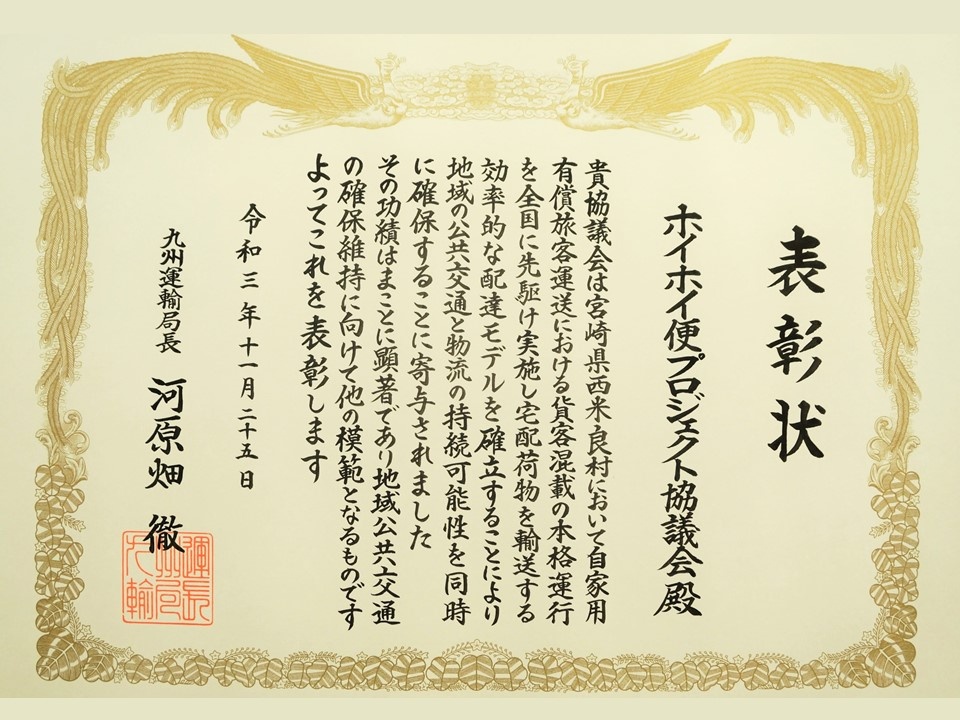 表彰状
ホイホイ便プロジェクト協議会殿
貴協議会は宮崎県西米良村において自家用
有償旅客運送における貨客混載の本格運行
を全国に先駆け実施し宅配荷物を輸送する
効率的な配達モデルを確立することにより
地域の公共交通と物流の持続可能性を同時
に確保することに寄与されました
その功績はまことに顕著であり地域公共交通
の確保維持に向けて他の模範となるものです
よってこれを表彰します
令和三年十一月二十五日
九州運輸局長 河原畑 徹